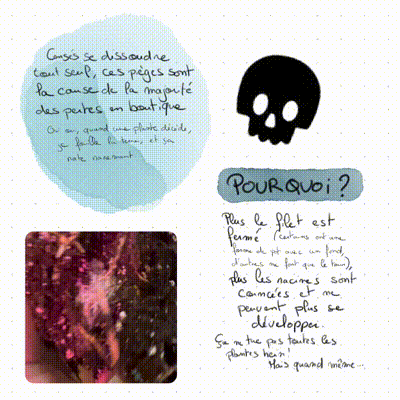 Censés se dissoudre
tout seul, ces pièges sont
la cause de la majorité
des pertes en boutique
Ou en, quand une plante décède,
je fouille la terre, et ça
rate rarement
POURQUOI ?
Plus le filet est
fermé (certains ont une
forme de pot avec un fond,
d'autres ne font que le tour),
plus les racines sont
coincées et ne
peuvent plus se
développer.
Ça ne tue pas toutes les
plantes hein !
Mais quand même...